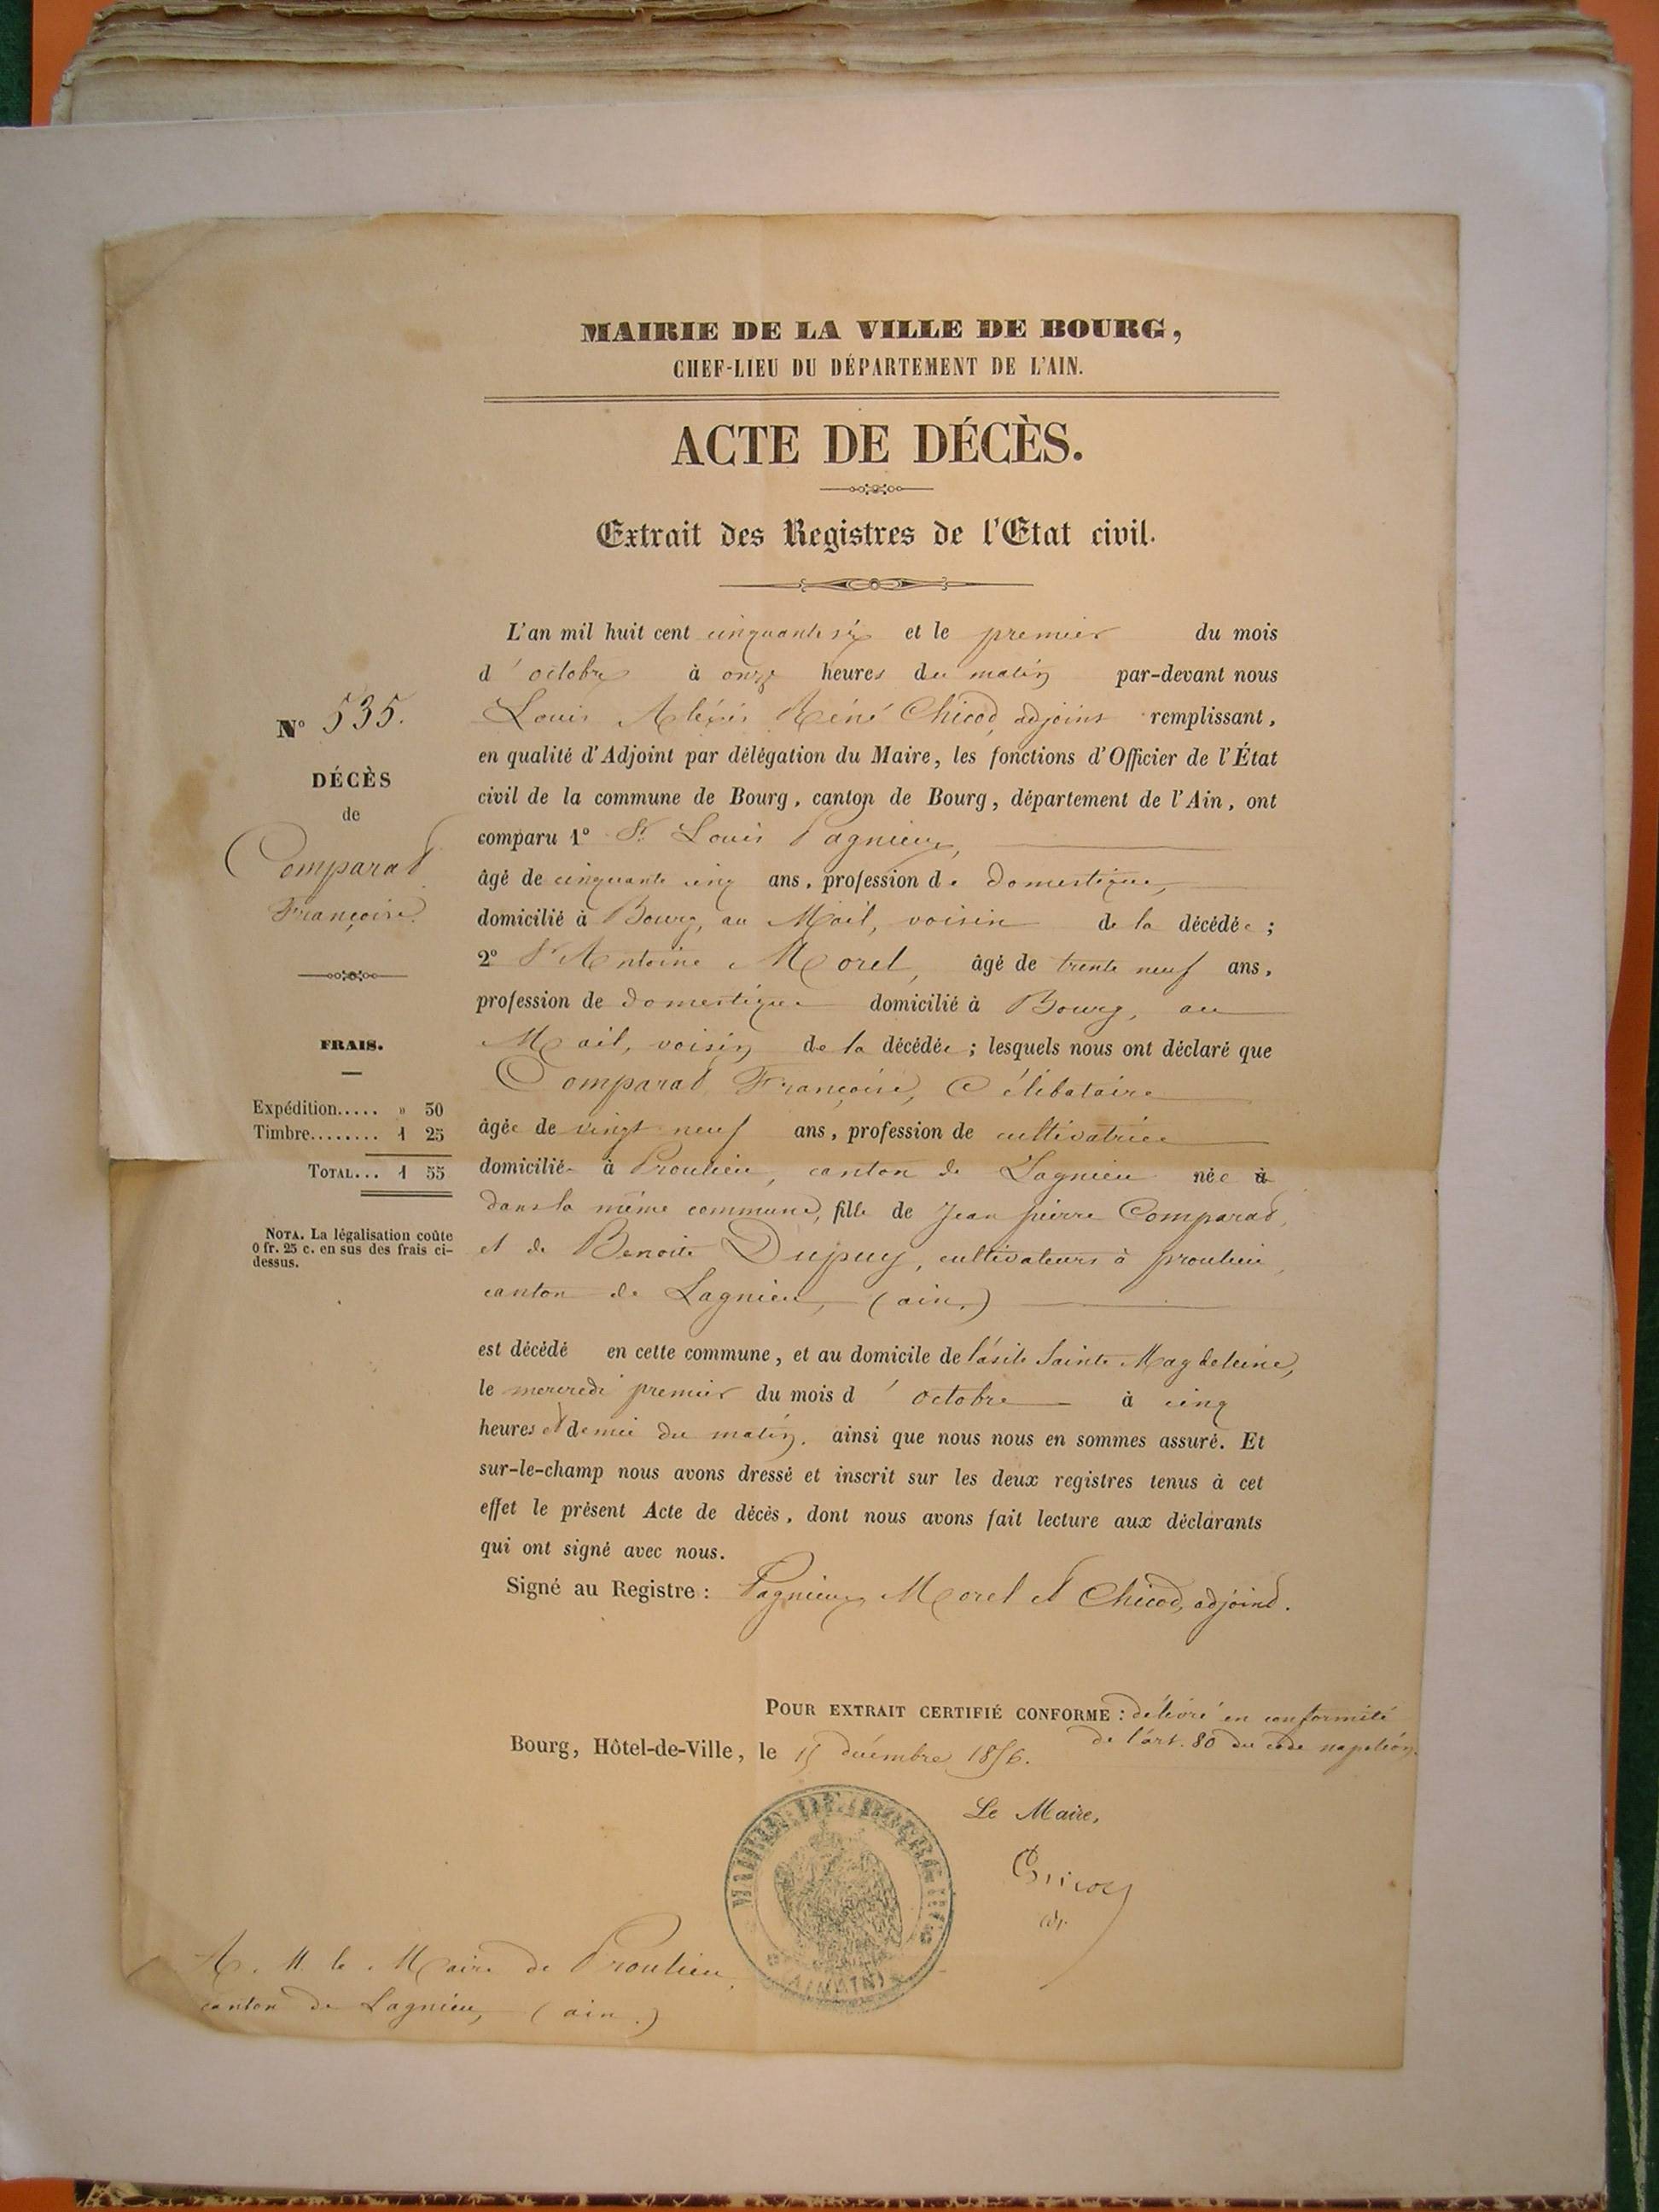 MAIRIE DE LA VILLE DE BOURG,
CHEF-LIEU DU DÉPARTEMENT DE L'AIN.
ACTE DE DÉCÈS.
Extrait des Registres de l'Etat civil.
L'an mil huit cent cinquante six et le premier du mois
d'octobre à onze heures du matin par-devant nous
Louis Alexis Réné Chicod, adjoint remplissant,
en qualité d'Adjoint par délégation du Maire, les fonctions d'Officier de l'État
civil de la commune de Bourg, canton de Bourg, département de l'Ain, ont
comparu 1° Sr Louis Pagnieux,
âgé de cinquante cinq ans, profession de domestique,
domicilié à Bourg, au Mail, voisin de la décédée ;
2° Sr Antoine Morel, âgé de trente neuf ans,
profession de domestique domicilié à Bourg, au
Mail, voisin de la décédée ; lesquels nous ont déclaré que
Comparat Françoise, Célibataire
âgée de vingt neuf ans, profession de cultivatrice
domiciliée à Proulieu, canton de Lagnieu née à
dans la même commune, fille de Jean pierre Comparat,
et de Benoite Dupuy, cultivateurs à proulieu,
canton de Lagnieu, (ain.)
est décédé en cette commune, et au domicile de l'asile Sainte Magdeleine,
le mercredi premier du mois d'octobre à cinq
heures et demie du matin. ainsi que nous nous en sommes assuré. Et
sur-le-champ nous avons dressé et inscrit sur les deux registres tenus à cet
effet le présent Acte de décès, dont nous avons fait lecture aux déclarants
qui ont signé avec nous.
Signé au Registre : Pagnieux, Morel et Chicod, adjoint.
POUR EXTRAIT CERTIFIÉ CONFORME : délivré en conformité
de l'art. 80 du code napoléon.
Bourg, Hôtel-de-Ville, le 15 décembre 1856.
Le Maire,
MAIRIE DE BOURG
(AIN)
A. M. le Maire de Proulieu,
canton de Lagnieu, (ain.)
N° 535.
DÉCÈS
de
Comparat
Françoise.
FRAIS.
Expédition..... » 30
Timbre........ 1 25
TOTAL... 1 55
NOTA. La légalisation coûte
0 fr. 25 c. en sus des frais ci-
dessus.